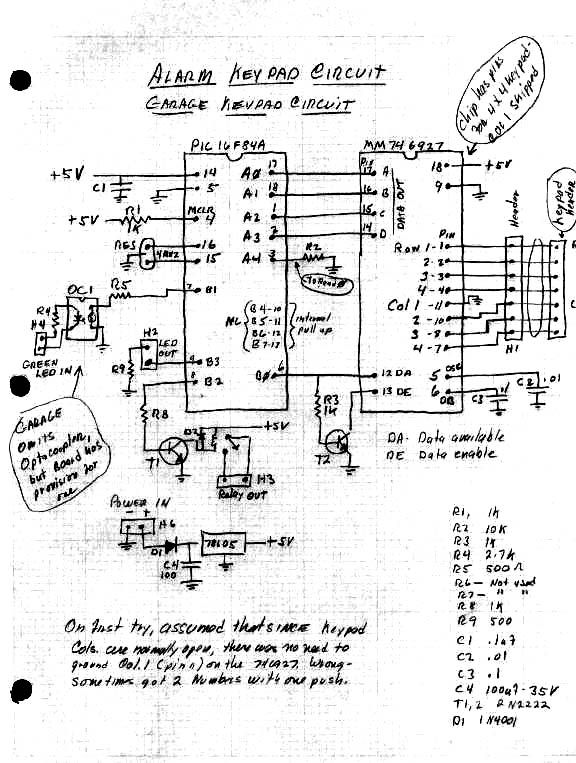 ALARM KEYPAD CIRCUIT
GARAGE KEYPAD CIRCUIT
Chip has pins
for 4x4 keypad-
Col 1 skipped
PIC16F84A
MM746927
+5V
C1
14
5
A0 17
A1 18
A2 1
A3 2
A4 3
Pin
17 A
16 B
15 C
14 D
DATA OUT
18 +5V
9
+5V
R1
1K
MCLR
4
RES
16
15
4MHZ
R2
to Read 0
PIN
Row 1-1
2-2
3-3
4-4
Col 1-11
2-10
3-8
4-7
Header
Keypad
Header
H1
OC1
R5
B1
R4
H4
GREEN
LED IN
H2
LED
OUT
R9
B3
B2
NC
B4-10
B5-11
B6-12
B7-13
internal
pull up
B0 6
12 DA
13 DE
5 OSC
6 DB
C2 .01
C3 .1
R8
T1
D2
+5V
H3
Relay OUT
R3
1K
T2
DA- Data available
DE Data enable
GARAGE
omits
Optocoupler,
but Board has
provision for
one
POWER IN
- +
H6
D1
C4
100
78L05
+5V
R1, 1K
R2 10K
R3 1K
R4 2.7K
R5 500Ω
R6 - Not used
R7 - " "
R8 1K
R9 500
C1 .1uf
C2 .01
C3 .1
C4 100uf-35V
T1,2 2N2222
D1 1N4001
On first try, assumed that SINCE Keypad
Cols. were normally open, there was no need to
ground Col.1 (pin 11) on the 74C927. Wrong-
sometimes got 2 Numbers with one push.